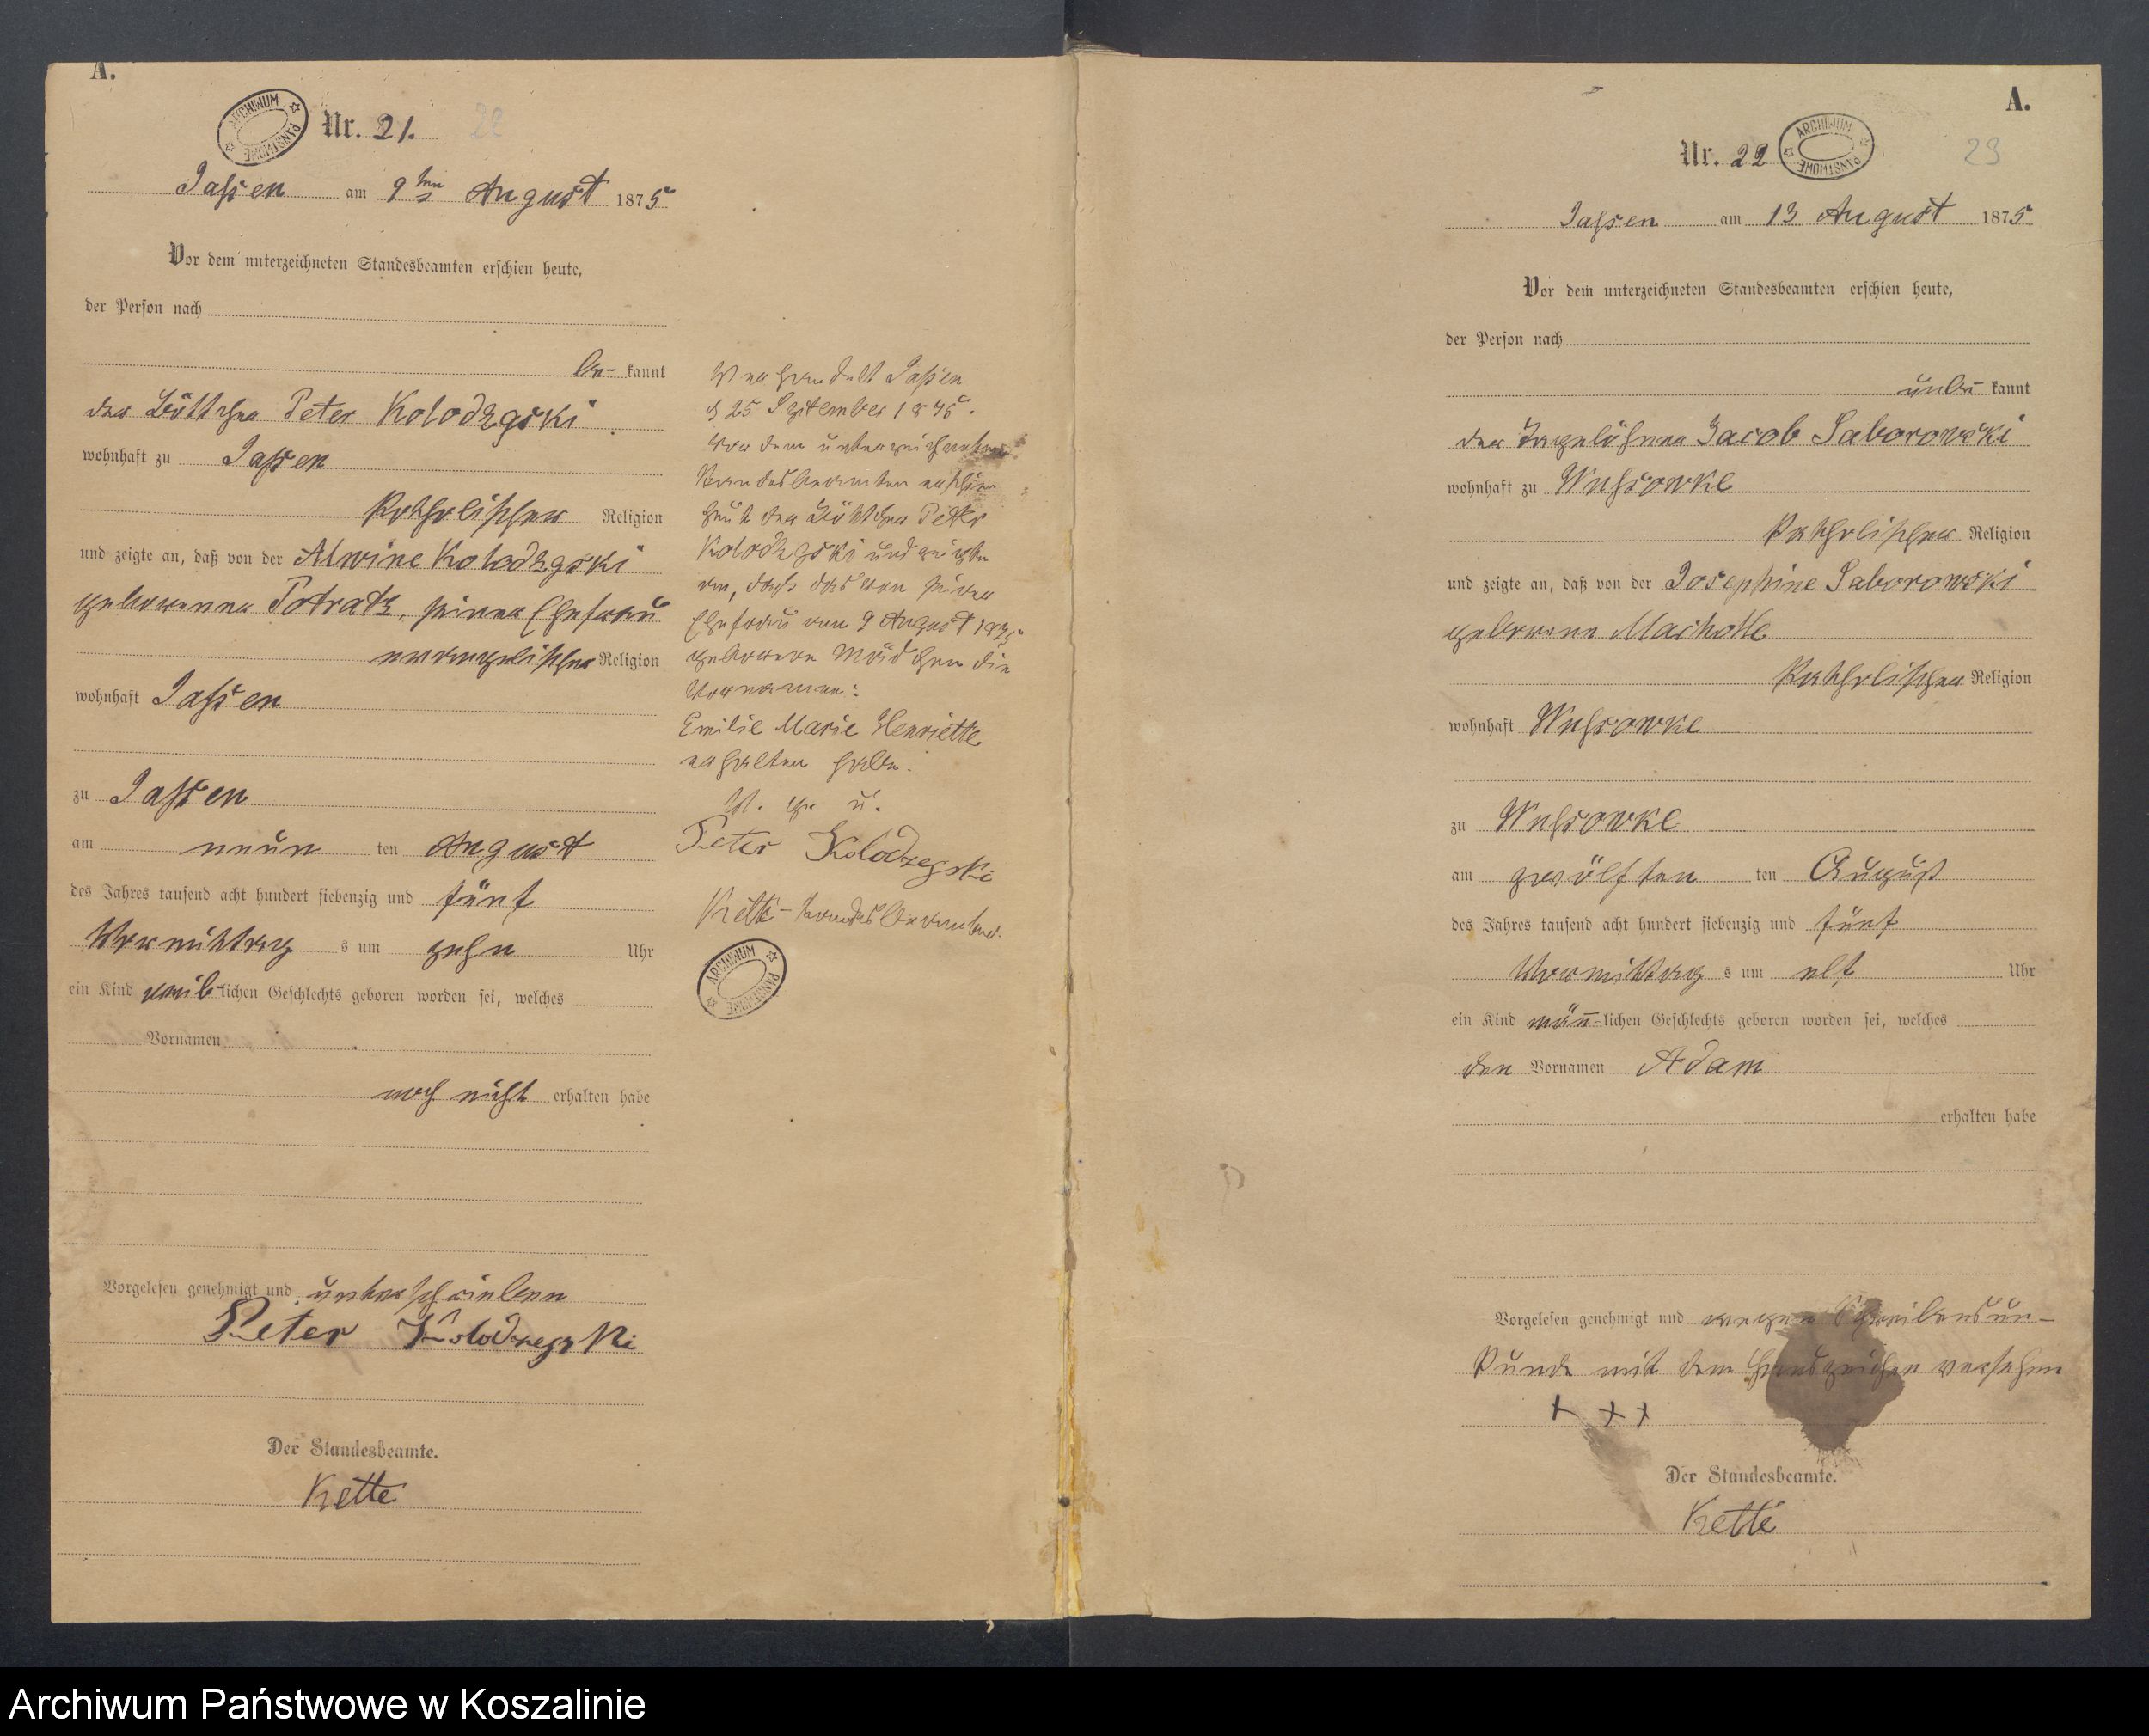 A.
ARCHIWUM PAŃSTWOWE
Nr. 21. 22
Jassen am 9ten August 1875
Vor dem unterzeichneten Standesbeamten erschien heute,
der Person nach
be- kannt
der Böttcher Peter Kolodzgski
wohnhaft zu Jassen
katholischer Religion
und zeigte an, daß von der Alwine Kolodzgski
geborenen Potratz, seiner Ehefrau
evangelischer Religion
wohnhaft Jassen
zu Jassen
am neun ten August
des Jahres tausend acht hundert siebenzig und fünf
Vormittag s um zehn Uhr
ein Kind weib-lichen Geschlechts geboren worden sei, welches
Vornamen
noch nicht erhalten habe
Vorgelesen genehmigt und unterschrieben
Peter Kolodzegski
Der Standesbeamte.
Kette
Verhandelt Jassen
d 25 September 1875.
Vor dem unterzeichneten
Standesbeamten erschien
heut der Böttcher Peter
Kolodzgski und zeigte
an, dass das von seiner
Ehefrau am 9 August 1875
geborene Mädchen die
Vornamen:
Emilie Marie Henriette
erhalten habe.
v. g. u.
Peter Kolodzegski
Kette Standesbeamter.
ARCHIWUM PAŃSTWOWE
A.
Nr. 22
ARCHIWUM PAŃSTWOWE
23
Jassen am 13 August 1875
Vor dem unterzeichneten Standesbeamten erschien heute,
der Person nach
unbe- kannt
der Tagelöhner Jacob Saborowski
wohnhaft zu Wussowke
katholischer Religion
und zeigte an, daß von der Josephine Saborowski
geborene Machotte
katholischer Religion
wohnhaft Wussowke
zu Wussowke
am zwölften ten August
des Jahres tausend acht hundert siebenzig und fünf
Vormittag s um elf Uhr
ein Kind män̄-lichen Geschlechts geboren worden sei, welches
den Vornamen Adam
erhalten habe
Vorgelesen genehmigt und wegen Schreibensun-
kunde mit dem Handzeichen versehen
+ + +
Der Standesbeamte.
Kette
Archiwum Państwowe w Koszalinie